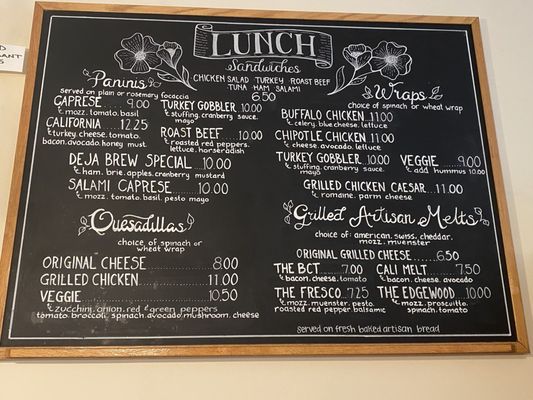 LUNCH
Sandwiches
CHICKEN SALAD TURKEY ROAST BEEF
TUNA HAM SALAMI
6.50
Paninis
served on plain or rosemary focaccia
CAPRESE 9.00
mozz. tomato. basil
CALIFORNIA 12.25
turkey. cheese. tomato.
bacon. avocado. honey must.
TURKEY GOBBLER 10.00
stuffing. cranberry sauce.
mayo
ROAST BEEF 10.00
roasted red peppers.
lettuce. horseradish
DEJA BREW SPECIAL 10.00
ham. brie. apples. cranberry mustard
SALAMI CAPRESE 10.00
mozz. tomato. basil. pesto mayo
Quesadillas
choice of spinach or
wheat wrap
ORIGINAL CHEESE 8.00
GRILLED CHICKEN 11.00
VEGGIE 10.50
zucchini. onion. red & green peppers
tomato. broccoli. spinach. avocado. mushroom. cheese
Wraps
choice of spinach or wheat wrap.
BUFFALO CHICKEN 11.00
celery. blue cheese. lettuce
CHIPOTLE CHICKEN 11.00
cheese. avocado. lettuce
TURKEY GOBBLER 10.00
stuffing. cranberry sauce.
mayo
VEGGIE 9.00
add hummus 10.00
GRILLED CHICKEN CAESAR 11.00
romaine. parm cheese
Grilled Artisan Melts
choice of: american. swiss. cheddar.
mozz. muenster
ORIGINAL GRILLED CHEESE 6.50
THE BCT 7.00
bacon. cheese. tomato
CALI MELT 7.50
bacon. cheese. avocado
THE FRESCO 7.25
mozz. muenster. pesto.
roasted red pepper balsamic
THE EDGEWOOD 10.00
mozz. prosciutto.
spinach. tomato
served on fresh baked artisan bread